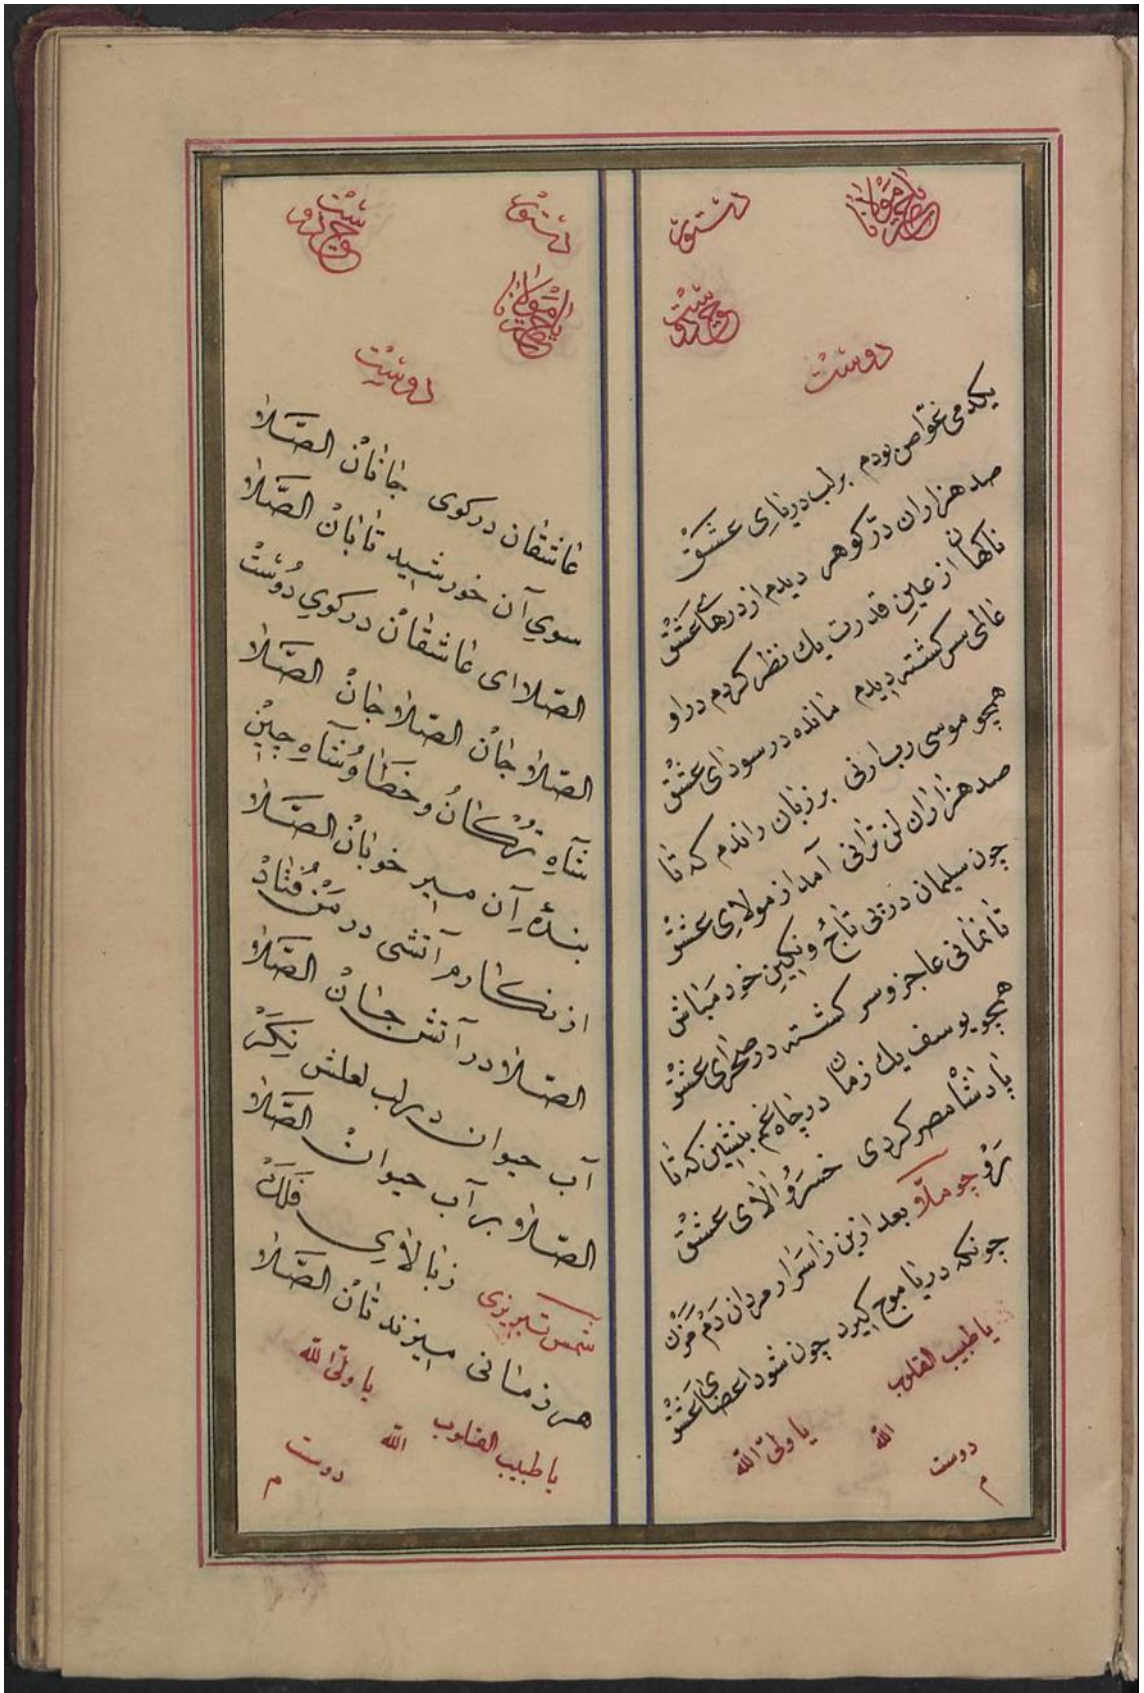 يا حضرت مولانا
دستور
وجه دوست
دوست
يكدمى غوّاص بودم برلب درياىِ عشقْ
صد هزاران درّ كوهر ديدم از درهاے عشقْ
ناكهان از عينِ قدرت يك نظر كردم دراو
عالمى سركشته ديدم مانده در سوداى عشقْ
همچو موسى رب ارنى بر زبان راندم كه تا
صد هزاران لن ترانى آمد از مولاىِ عشقْ
چون سليمان درپى تاجُ ونكينِ خود مَباش
تا نمانى عاجز وسر كشته در صحراى عشقْ
همچو يوسف يك زمان درچاه غم بنشين كه تا
پادشاه مصر كردى خسرَوُ والاى عشقْ
رَوْ چو ملّا بعد ازين از اسرار مردان دَمْ مَزَنْ
چونكه دريا موج كيرد چون شود اعضاىِ عشقْ
يا طبيب القلوب
الله
يا ولىّ الله
دوست
م
دستور
وجه دوست
يا حضرت مولانا
دوست
عاشقان دركوى جانانْ الصّلا
سوي آن خورشيد تابانْ الصّلا
الصّلا اى عاشقانْ دركوي دُوستْ
الصّلا جانْ الصّلا جانْ الصّلا
شاهِ تُرْكانُ وخَطا وُشاهِ چينْ
بندهٔ آن مير خوبانْ الصّلا
از نكارم آتشى در مَنْ فُتادْ
الصّلا در آتش جانْ الصّلا
آب حيوان درلب لعلش نِكَرْ
الصّلا بر آب حيوانْ الصّلا
شمس تبريزى زبالاىِ فَلَكْ
هر زمانى ميزند نانْ الصّلا
يا ولىّ الله
يا طبيب القلوب
الله
دوست
م